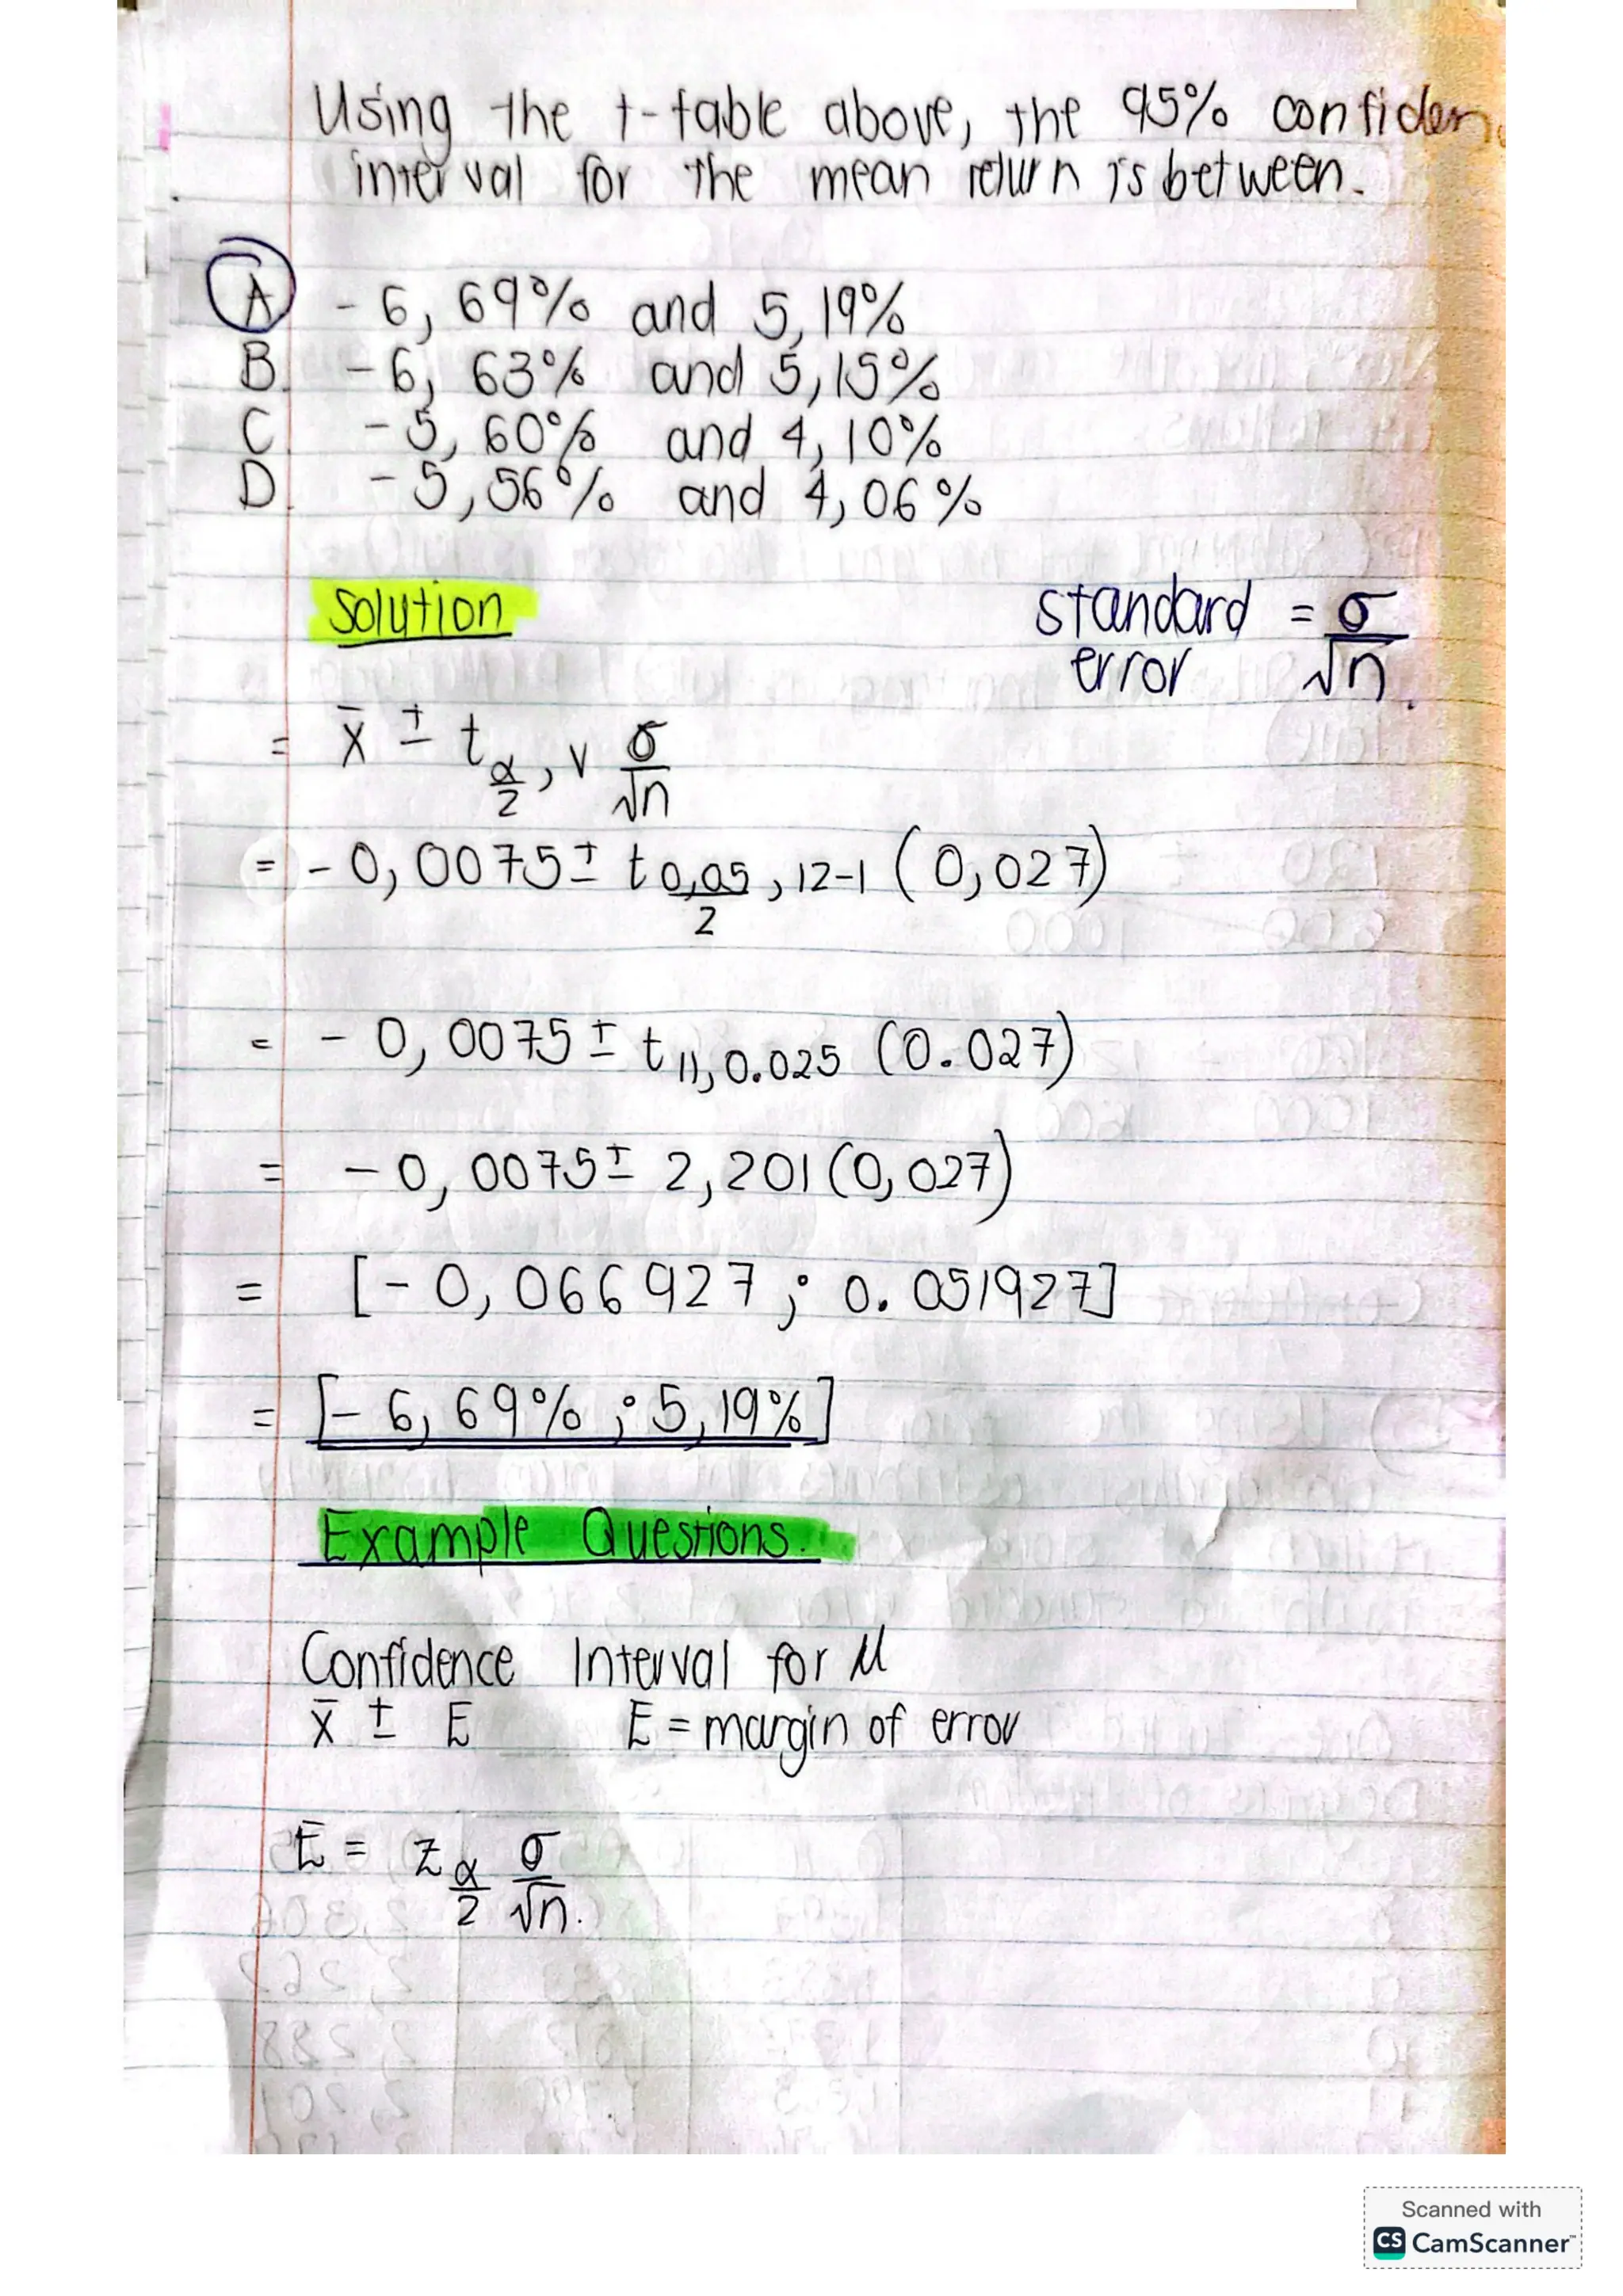 Using the t-table above, the 95% confiden
interval for the mean return is between.
A - 6,69% and 5,19%
B. - 6,63% and 5,15%
C - 5,60% and 4,10%
D. - 5,56% and 4,06%
Solution
standard error = σ/√n.
= x̄ ± t α/2, v σ/√n
= - 0,0075 ± t 0,05/2, 12-1 (0,027)
= - 0,0075 ± t 11, 0.025 (0.027)
= - 0,0075 ± 2,201 (0,027)
= [- 0,066927 ; 0.051927]
= [- 6,69% ; 5,19%]
Example Questions.
Confidence Interval for μ
x̄ ± E E = margin of error
E = z α/2 σ/√n.
Scanned with
CS CamScanner™